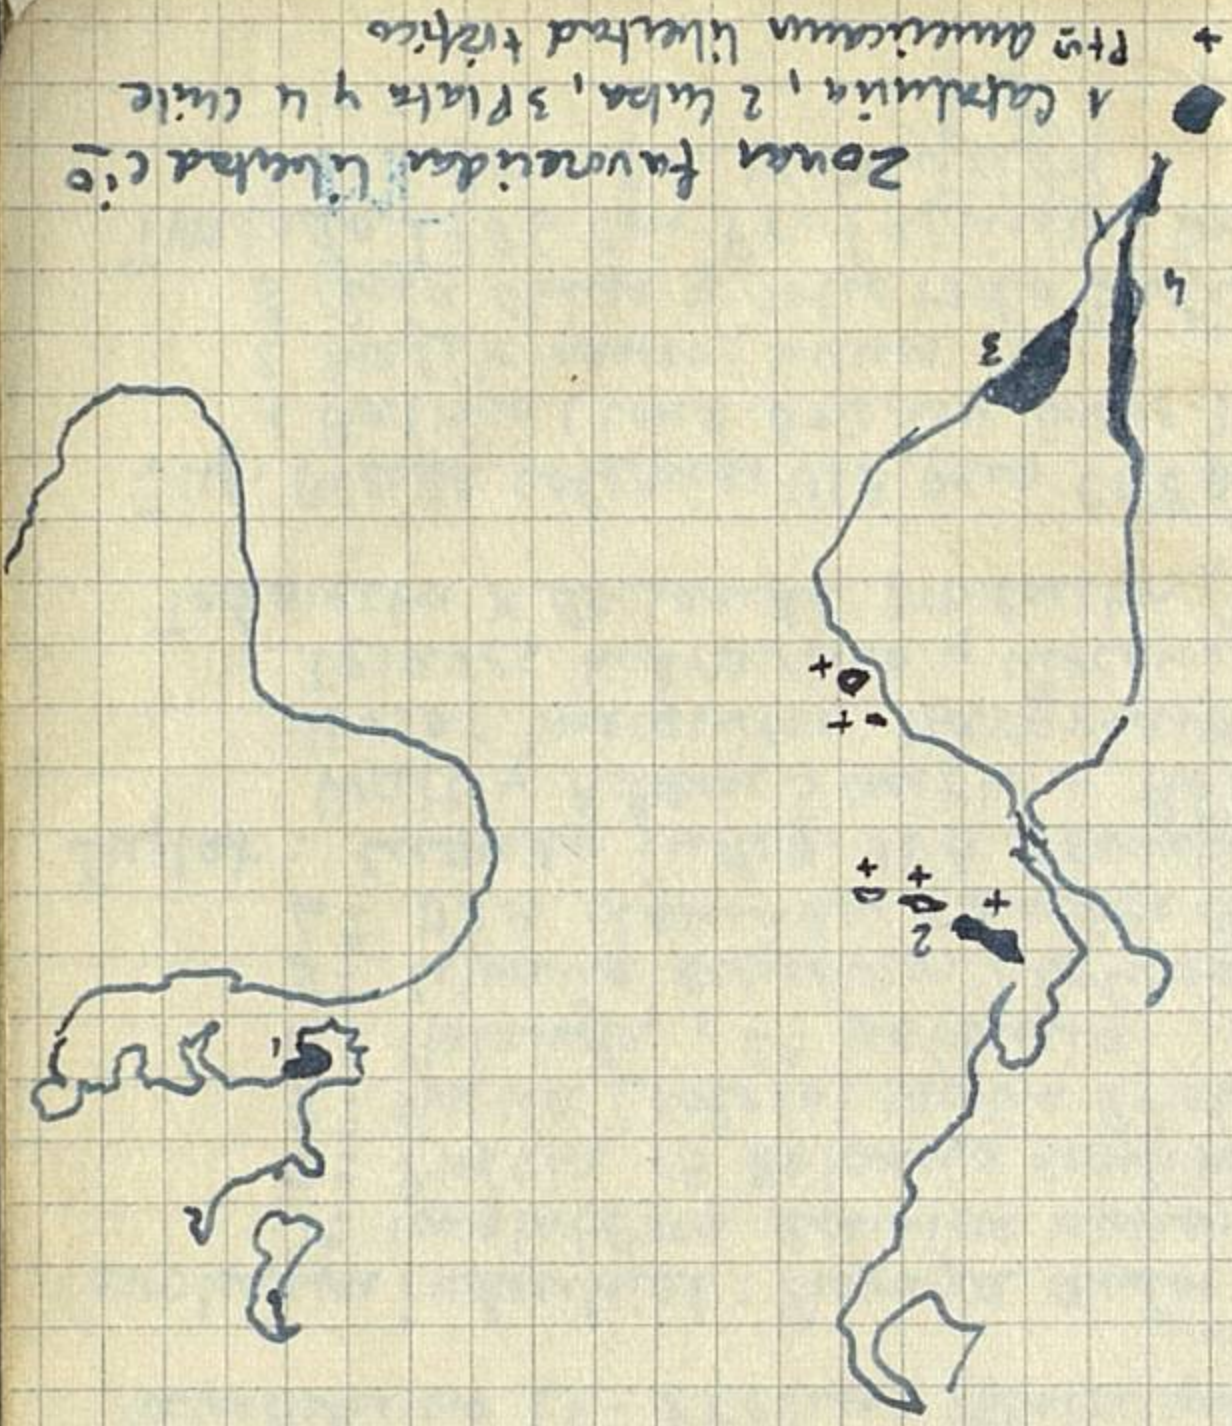 1
2
+
+
+
+
+
3
4
Zonas favorecidas libertad cio
1 Cataluña, 2 Cuba, 3 Plata y 4 Chile
+ Ptos americanos libertad tráfico